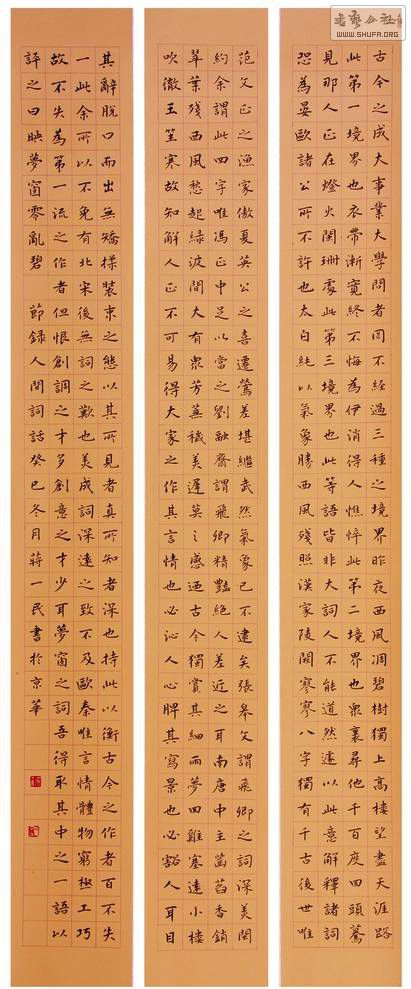 書法公社
WWW.SHUFA.ORG
古今之成大事業大學問者罔不經過三種之境界昨夜西風凋碧樹獨上高樓望盡天涯路
此第一境界也衣帶漸寬終不悔為伊消得人憔悴此第二境界也眾裏尋他千百度回頭驀
見那人正在燈火闌珊處此第三境界也此等語皆非大詞人不能道然遽以此意解釋諸詞
恐為晏歐諸公所不許也太白純以氣象勝西風殘照漢家陵闕寥寥八字獨有千古後世唯
范文正之漁家傲夏英公之喜遷鶯差堪繼武然氣象已不逮矣張皋文謂飛卿之詞深美閎
約余謂此四字唯馮正中足以當之劉融齋謂飛卿精豔絕人差近之耳南唐中主菡萏香銷
翠葉殘西風愁起綠波間大有眾芳蕪穢美遲莫之感迺古今獨賞其細雨夢回雞塞遠小樓
吹徹玉笙寒故知解人正不可易得大家之作其言情也必沁人心脾其寫景也必豁人耳目
其辭脫口而出無矯揉裝束之態以其所見者真所知者深也持此以衡古今之作者百不失
一此余所以不免有北宋後無詞之歎也美成詞深遠之致不及歐秦唯言情體物窮極工巧
故不失為第一流之作者但恨創調之才多創意之才少耳夢窗之詞吾得取其中之一語以
評之曰映夢窗零亂碧 節錄人間詞話癸巳冬月蔣一民書於京華